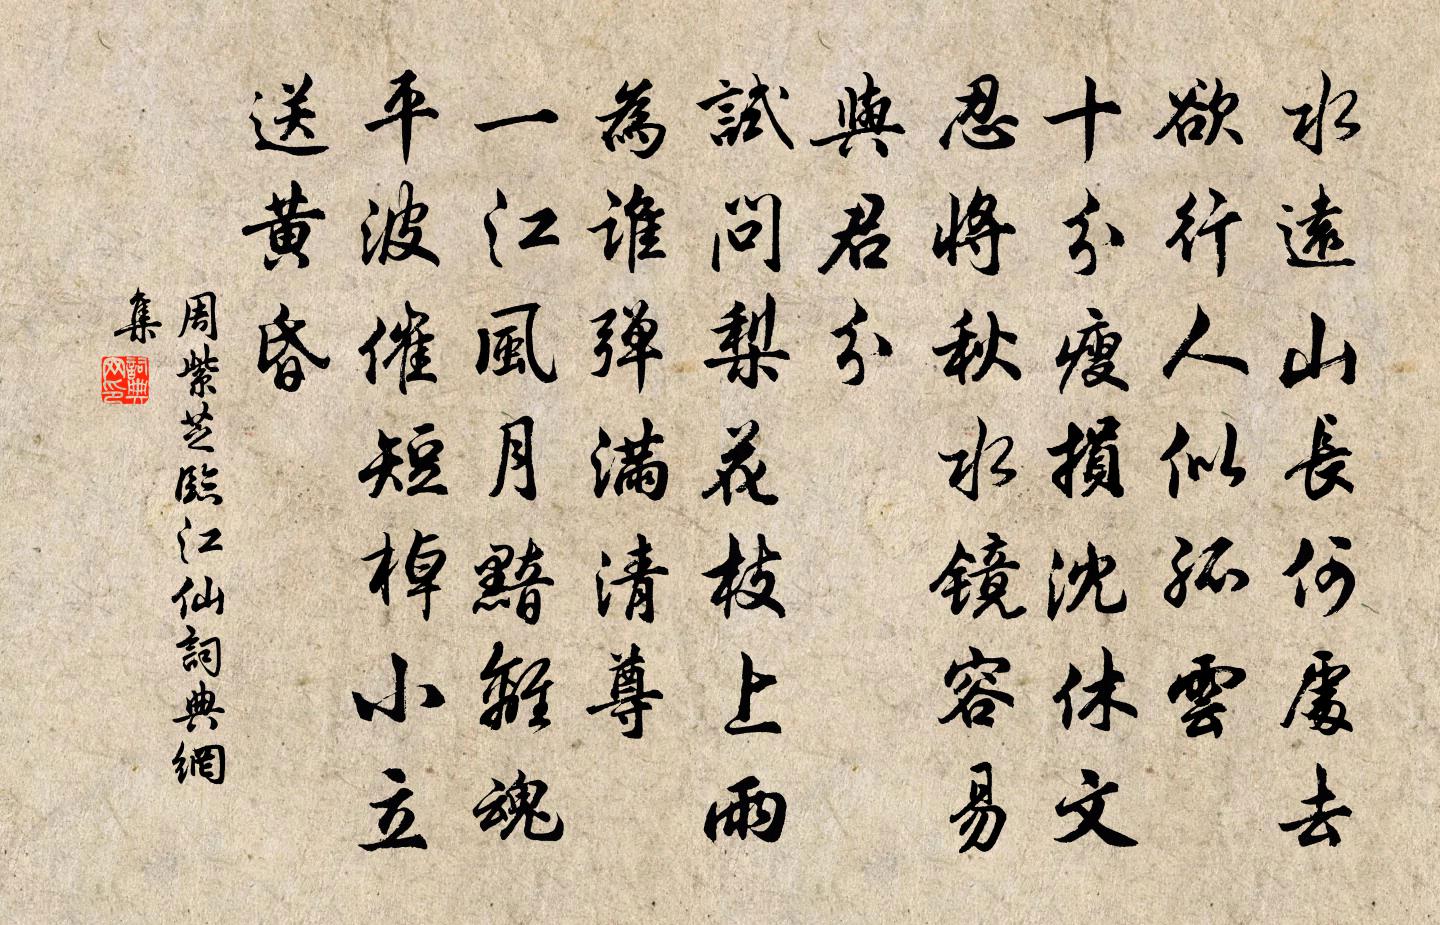 水遠山長何處去
欲行人似孤雲
十分瘦損沈休文
忍將秋水镜容易
與君分
試問梨花枝上雨
為誰弹滿清尊
一江風月黯離魂
平波催短棹小立
送黃昏
周紫芝臨江仙詞典網
集
詞典
网印